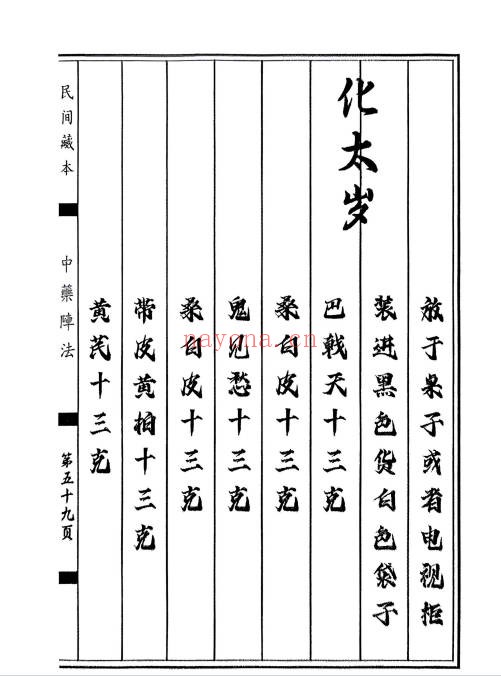 放于桌子或者电视柜
装进黑色货白色袋子
化太岁
巴戟天十三克
桑白皮十三克
鬼见愁十三克
桑白皮十三克
带皮黄柏十三克
黄芪十三克
民间藏本
中藥陣法
第五十九页
nayona.cn